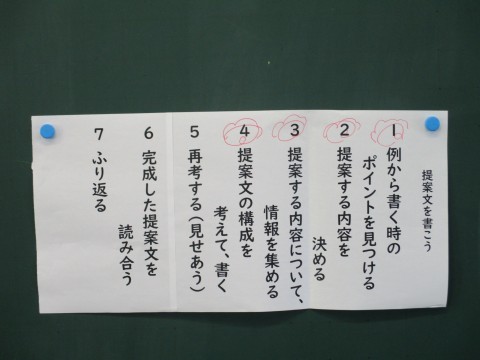 提案文を書こう
1 例から書く時の
ポイントを見つける
2 提案する内容を
決める
3 提案する内容について、
情報を集める
4 提案文の構成を
考えて、書く
5 再考する(見せあう)
6 完成した提案文を
読み合う
7 ふり返る